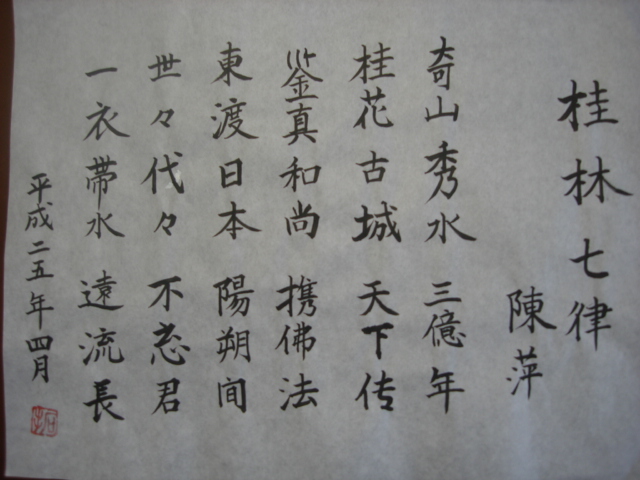 桂林七律
陳萍
奇山秀水 三億年
桂花古城 天下传
鉴真和尚 携佛法
東渡日本 陽朔间
世々代々 不忘君
一衣帯水 遠流長
平成二五年四月